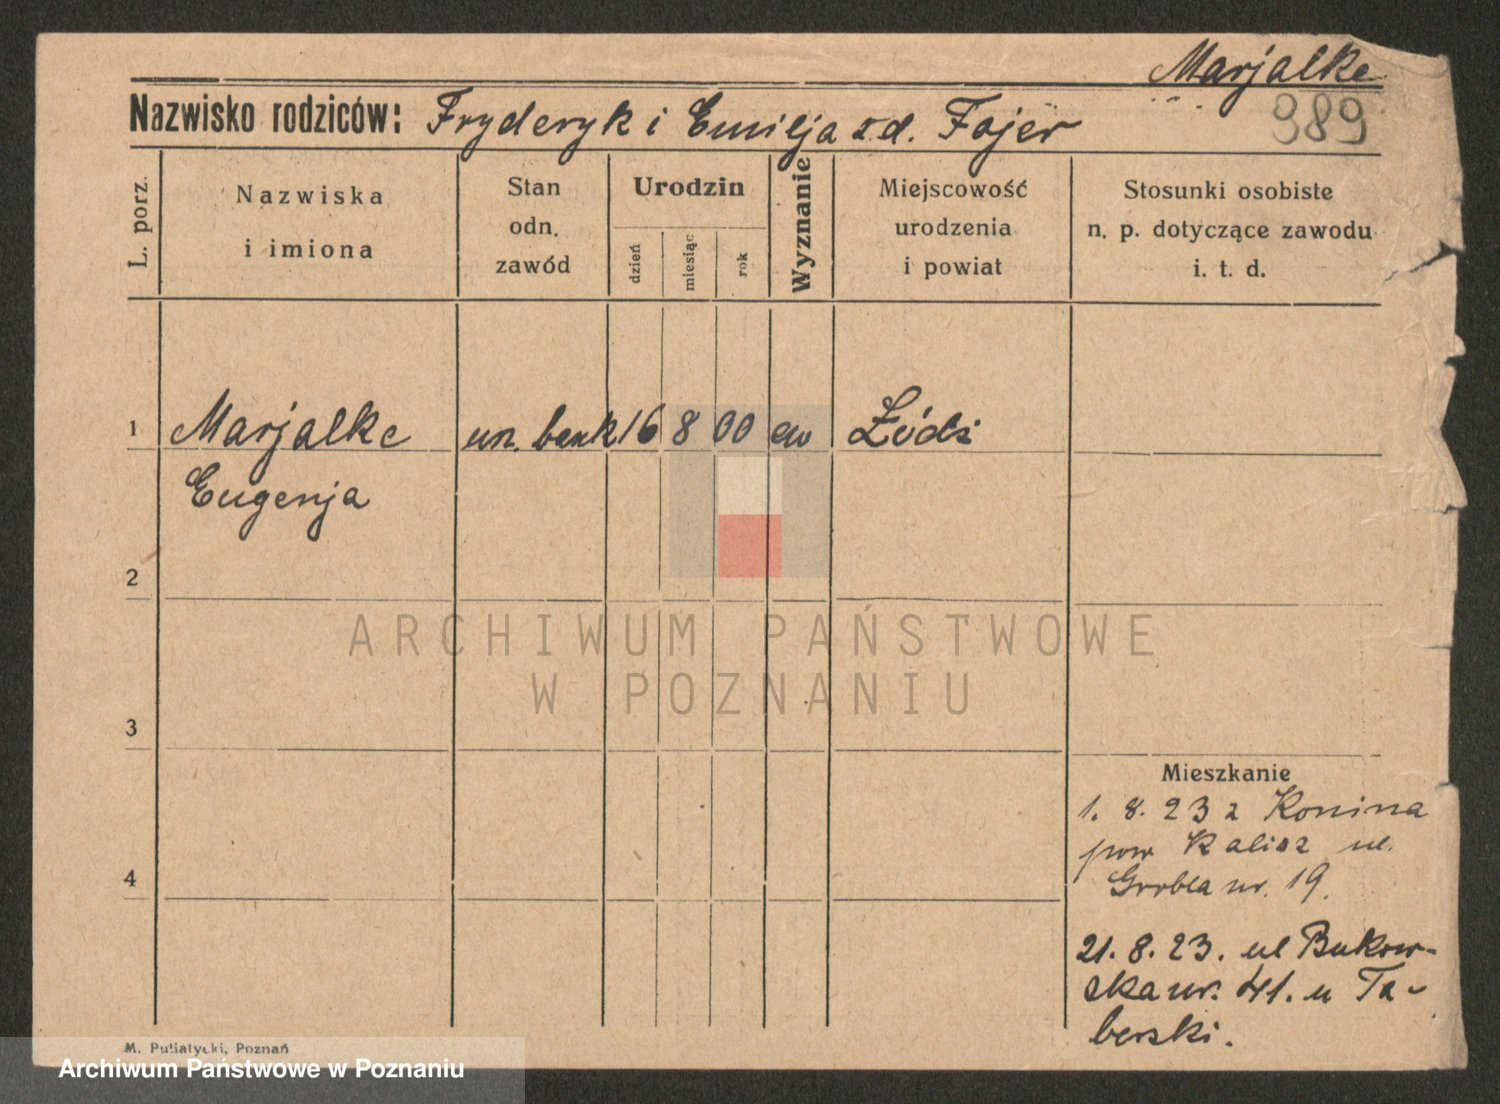 Marjalke
389
Nazwisko rodziców: Fryderyk i Emilja z d. Fajer
L. porz.
Nazwiska
i imiona
Stan
odn.
zawód
Urodzin
dzień
miesiąc
rok
Wyznanie
Miejscowość
urodzenia
i powiat
Stosunki osobiste
n. p. dotyczące zawodu
i. t. d.
1 Marjalke urz. bank 16 8 00 ew Łódź
Eugenja
2
3
4
Mieszkanie
1. 8. 23 z Konina
pow Kalisz ul.
Grobla nr. 19.
21. 8. 23. ul Bukow-
ska nr. 41. u Ta-
berski.
ARCHIWUM PAŃSTWOWE
W POZNANIU
M. Putiatycki, Poznań
Archiwum Państwowe w Poznaniu